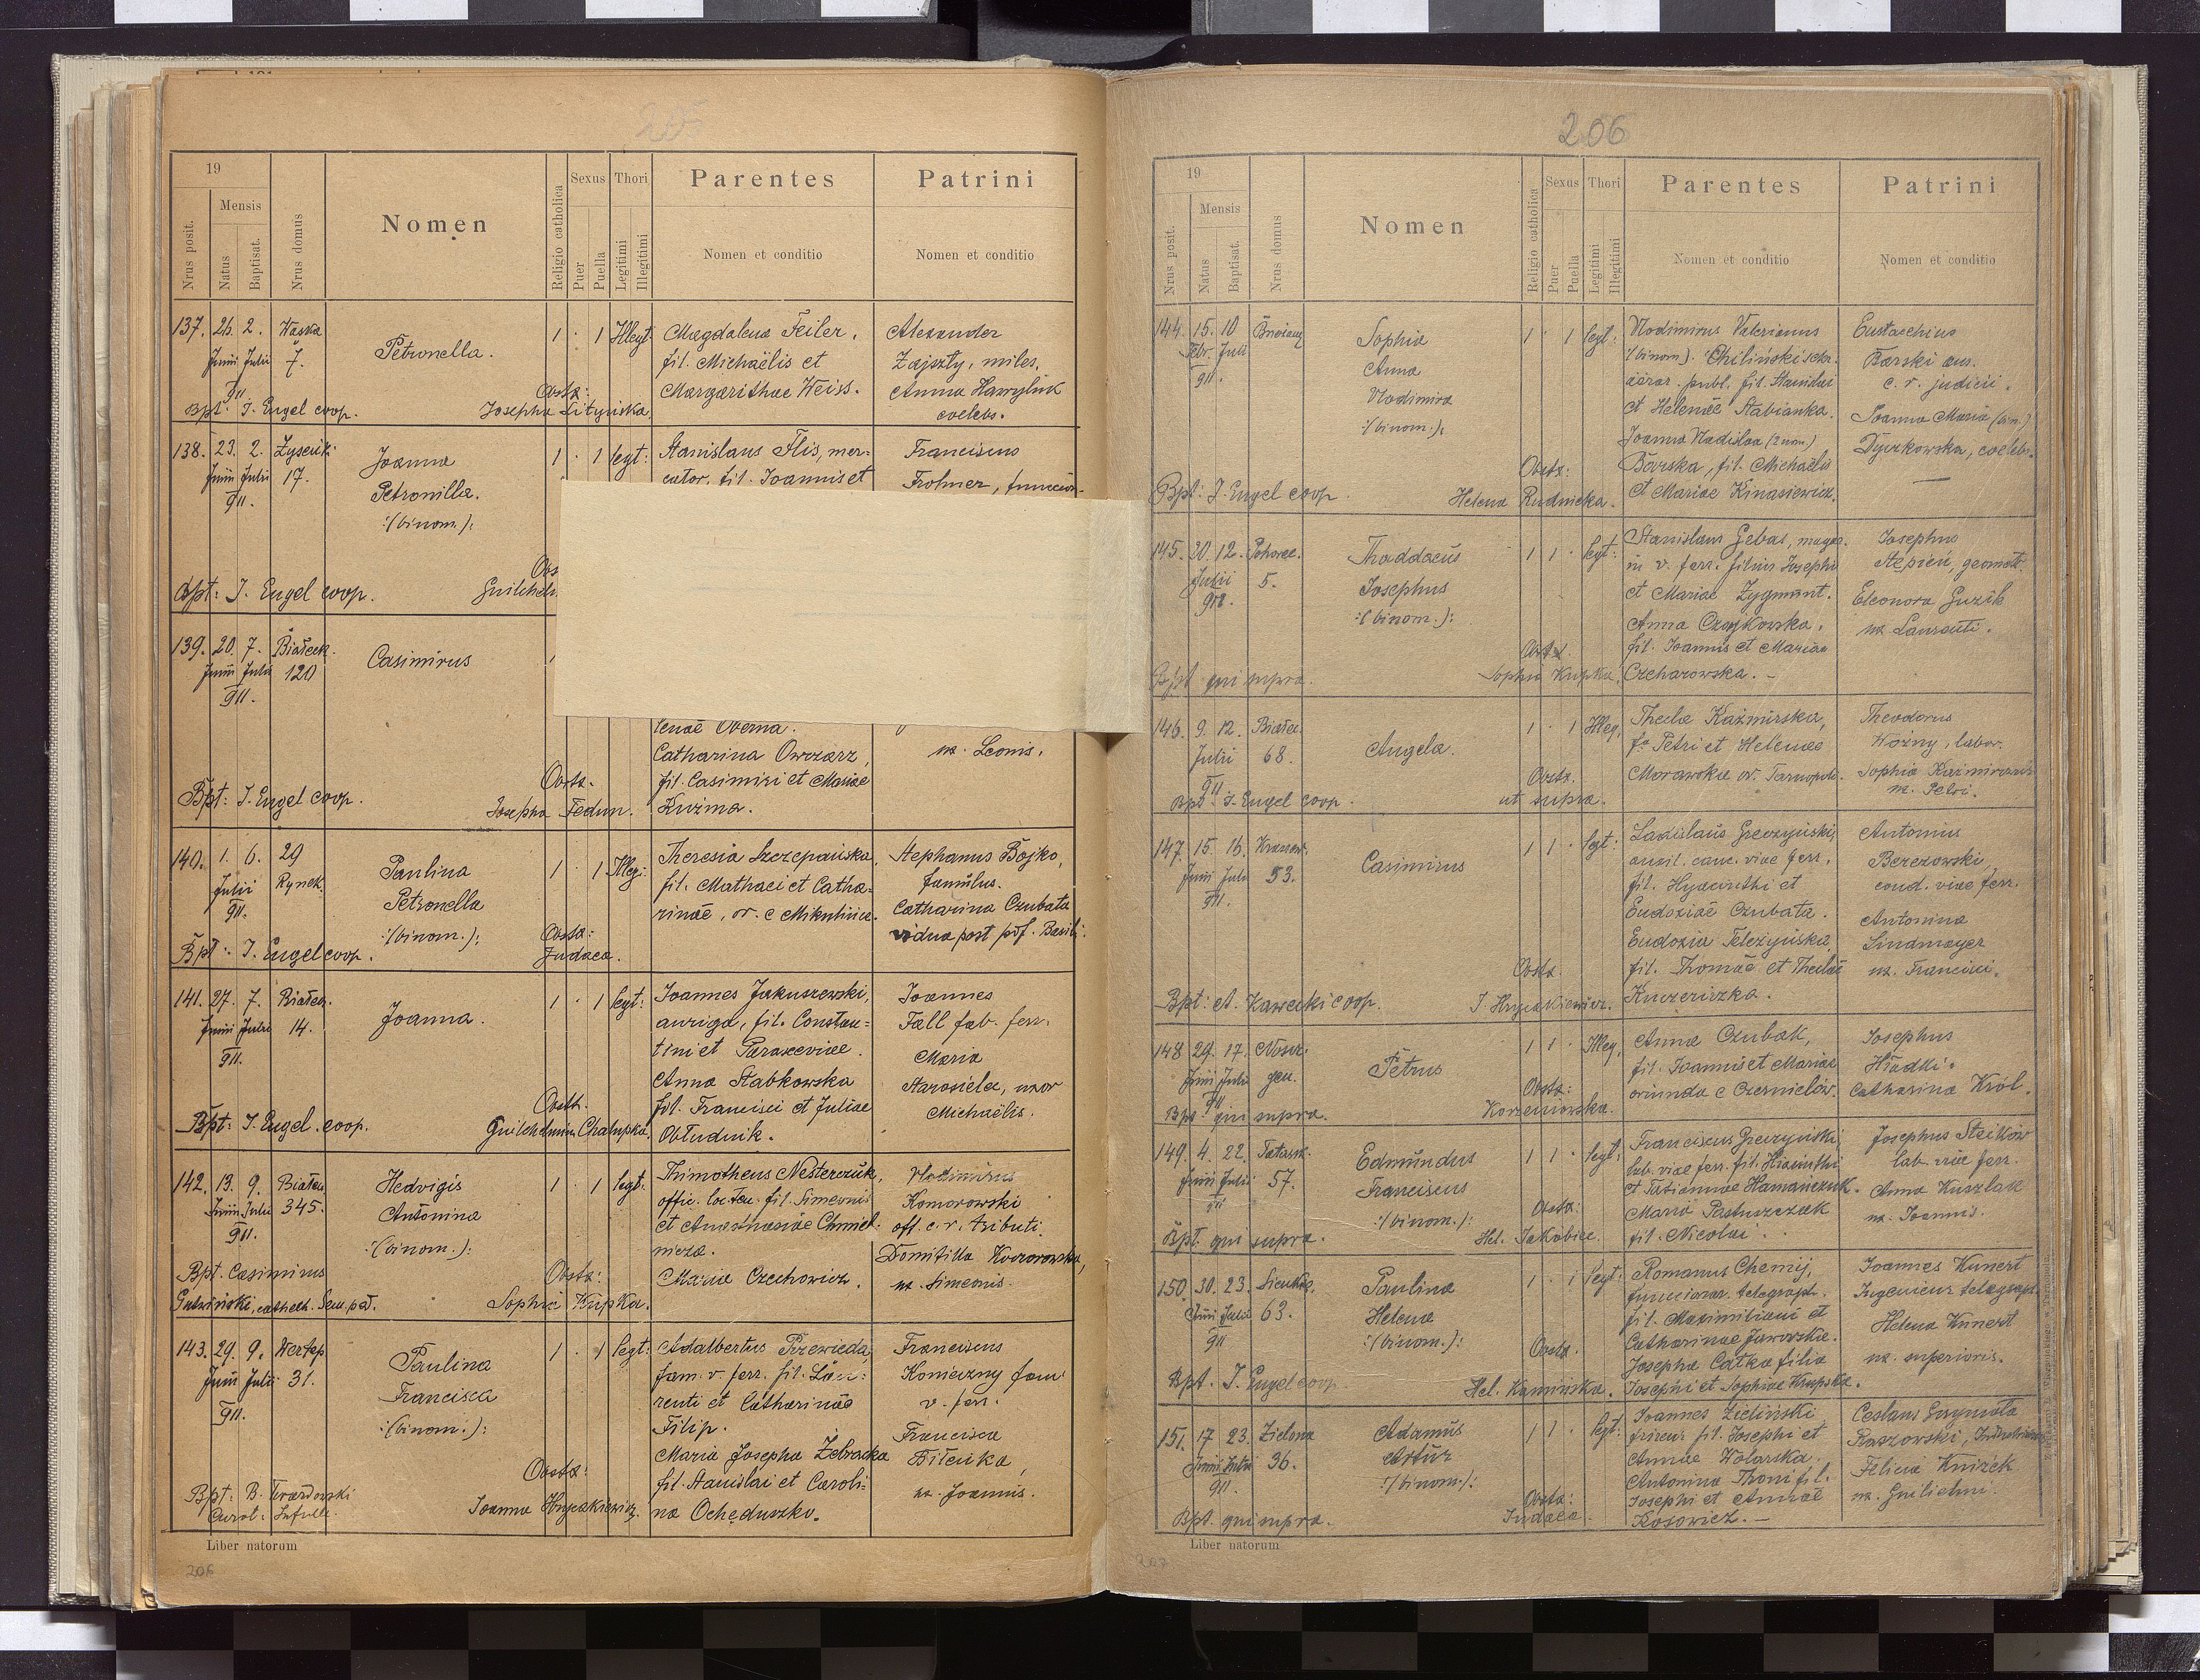 205
19
Mensis
Nrus posit.
Natus
Baptisat.
Nrus domus
Nomen
Religio catholica
Sexus
Puer
Puella
Thori
Legitimi
Illegitimi
Parentes
Nomen et conditio
Patrini
Nomen et conditio
137. 26. 2. Waska
Junii Julii 7.
911
Petronella.
1 · 1 Illegt
Magdalena Feiler,
fil. Michaëlis et
Margarithae Weiss.
Alexander
Zajszły, miles.
Anna Hawryluk
coelebs.
Obstx:
Bpt: J. Engel coop.
Josepha Lityńska
138. 23. 2. Zyscik:
Junii Julii 17.
911.
Joanna
Petronilla.
:(binom.):
1 · 1 legt:
Stanislaus Flis, mer-
cator. fil. Joannis et
Franciscus
Frohner, funccion-
Obs
Bpt: J. Engel coop.
Guilhelm
139. 20. 7. Białeck.
Junii Julii 120
911.
Casimirus
lenae Oberna.
Catharina Owczarz,
fil. Casimiri et Mariae
Kuźma.
ux. Leonis.
Obstx.
Bpt: J. Engel coop.
Josepha Fedun.
140. 1. 6. 29
Julii Rynek.
911.
Paulina
Petronella
:(binom.):
1 · 1 Illeg:
Theresia Szczepańska,
fil. Mathaei et Catha-
rinae, or. e Mikulińce.
Stephanus Bojko,
famulus.
Catharina Czubata
vidua post pdf. Basili.
Obstx:
Bpt: J. Engel coop.
Judaea.
141. 27. 7. Białeck.
Junii Julii 14.
911.
Joanna.
1 · 1 legt:
Joannes Jakuszewski,
auriga, fil. Constan-
tini et Parasceviae.
Anna Stabkowska
fil. Francisci et Juliae
Obłudnik.
Joannes
Fall fab. ferr.
Maria
Starosiela, uxor
Michaëlis.
Obsth.
Bpt: J. Engel. coop.
Guilhelmina Chałupka.
142. 13. 9. Białeck
Junii Julii 345.
911.
Hedvigis
Antonina
:(binom.):
1 · 1 legt:
Thimotheus Nesterczuk,
offic. loc. ten. fil. Simeonis
et Anasthasiae Chmiel-
nicza.
Maria Czechowicz.
Vladimirus
Komorowski
off. c. r. tributi.
Domitilla Koczorowska,
ux. Simeonis.
Bpt. Casimirus
Obstx:
Sophia Kupka.
143. 29. 9. Wertep
Junii Julii 31.
911.
Paulina
Francisca
:(binom.):
1 · 1 legt:
Adalbertus Przewieda,
fam. v. ferr. fil. Lau-
renti et Catharinae
Filip.
Maria Josepha Żebracka
fil. Stanislai et Caroli-
na Ochęduszko.
Franciscus
Konieczny fam
v. ferr.
Francisca
Bileńka,
ux. Joannis.
Obstx:
Bpt: B. Twardowski
Joanna Hryńakiewicz.
Liber natorum
206
206
19
Mensis
Nrus posit.
Natus
Baptisat.
Nrus domus
Nomen
Religio catholica
Sexus
Puer
Puella
Thori
Legitimi
Illegitimi
Parentes
Nomen et conditio
Patrini
Nomen et conditio
144. 15. 10
Febr. Julii
911.
Sophia
Anna
Vlodimira
:(binom.):
1 · 1 legt:
Vlodimirus Valerianus
(binom.) Chiliński
aërar. publ. fil. Stanislai
et Helenae Stabianka.
Joanna Vladislaa (2nom.)
Bărska, fil. Michaëlis
et Mariae Kinasiewicz.
Eustachius
Barski aus.
c. r. judicii.
Joanna Maria (bin.)
Dyczkowska, coelebs.
Obstx:
Bpt: J. Engel coop.
Helena Rudnicka.
145. 20. 12. Pohorec.
Julii 5.
911.
Thaddaeus
Josephus
:(binom.):
1 1 · legt:
Stanislaus Gebas, magas.
in v. ferr. filius Josephi
et Mariae Zygmunt.
Anna Czajkowska.
fil. Joannis et Mariae
Czeharowska. -
Josephus
Stepień, geometr
Eleonora Guzik
ux. Laurenti.
Obstx.
Bpt qui supra.
Sophia Kupka.
146. 9. 12. Białec.
Julii 68.
911
Angela.
1 · 1 Illeg,
Thecla Kaźmirska,
fa Petri et Helenae
Morawska or. Tarnopoli.
Theodorus
Woźny, labor.
Sophia Kaźmirczuk
ux. Petri.
Obstx.
Bpt: J. Engel coop.
ut supra.
147. 15. 16.
Junii Julii 53.
911.
Casimirus
1 1 · legt:
Ladislaus Greczyński,
auxil. canc. viae ferr.
fil. Hyacinthi et
Eudoxiae Czubata.
Eudoxia Teleżyńska,
fil. Thomae et Theclae
Kuczeriszka.
Antonius
Berezowski,
cond. viae ferr.
Antonina
Lindmayer
ux. Francisci.
Obstx.
Bpt: A. Kawecki coop.
J. Hryńakiewicz.
148 29. 17. Nosoc.
Junii Julii gen.
911
Petrus
1 1 · Illeg,
Anna Czubak,
fil. Joannis et Mariae
oriunda e Czernielów.
Josephus
Hładki.
Catharina Król.
Obstx:
Bpt. qui supra.
Korzeniowska.
149. 4. 22. Tatarsk.
Junii Julii 57.
911
Edmundus
Franciscus
:(binom.):
1 1 · legt:
Franciscus Greczyński,
lab. viae ferr. fil. Hiacinthi
et Tatiannae Hamańczuk.
Maria Pastuszczak
fil. Nicolai.
Josephus Steików
lab. viae ferr.
Anna Kuszlak
ux. Joannis.
Obstx:
Bpt. qui supra.
Hel. Jakóbiec.
150. 30. 23. Sienkie.
Junii Julii 63.
911
Paulina
Helena
:(binom.):
1 · 1 legt:
Romanus Chemij,
funccionar. telegraph.
fil. Maximiliani et
Catharinae Jaworskie.
Josepha Catka filia
Josephi et Sophiae Krupska.
Joannes Kunert
Ingenieur telegraph.
Helena Kunert
ux. superioris.
Obstx.
Bpt. J. Engel coop.
Hel. Kamińska.
151. 17 23. Zielona
Junii Julii 36.
911.
Adamus
Artur
:(binom.):
1 1 · legt:
Joannes Zieliński
friseur fil. Josephi et
Annae Wolarska.
Antonina Thoni fil.
Josephi et Annae
Kosowicz. -
Ceslaus
Raszowski,
Felicia Kniżek
ux. Guilielmi.
Obstx:
Bpt. qui supra.
Judaea.
Liber natorum
207